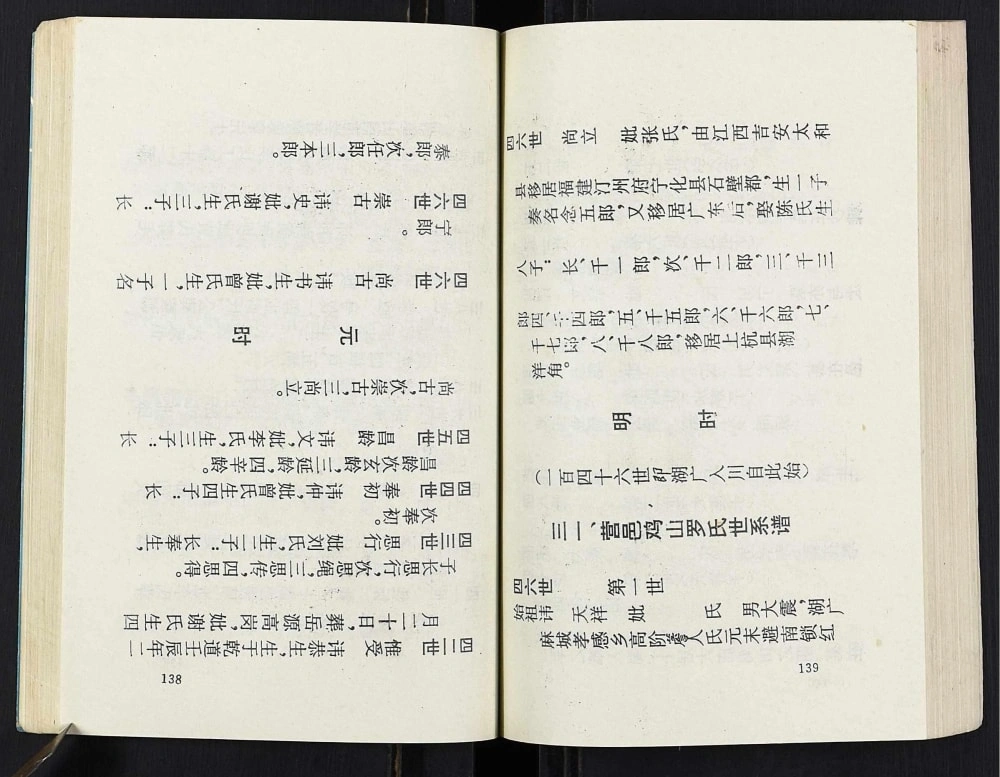 四二世 惟受 讳恭生,生于乾道壬辰年二
月二十日,葬岳源高岗,妣谢氏生四
子长思行,次思绳,三思传,四思得。
四三世 思行 妣刘氏,生二子:长奉生,
次奉初。
四四世 奉初 讳仲,妣曾氏生四子:长
昌龄次玄龄,三延龄,四辛龄。
四五世 昌龄 讳文,妣李氏,生三子:长
尚古,次崇古,三尚立。
元 时
四六世 尚古 讳书生,妣曾氏生,一子名
宁郎。
四六世 崇古 讳史,妣谢氏生,三子:长
泰郎,次任郎,三本郎。
138
四六世 尚立 妣张氏,由江西吉安太和
县移居福建汀州府宁化县石壁都,生一子
奏名念五郎,又移居广东后,娶陈氏生
八子:长、千一郎,次、千二郎,三、千三
郎四、千四郎,五、千五郎,六、千六郎,七、
千七郎,八、千八郎,移居上杭县湖
洋角。
明 时
(一百四十六世即湖广入川自此始)
三一、营邑鸡山罗氏世系谱
四六世 第一世
始祖讳 天祥 妣 氏 男大震,湖广
麻城孝感乡高阶 人氏元末避南锁红
139